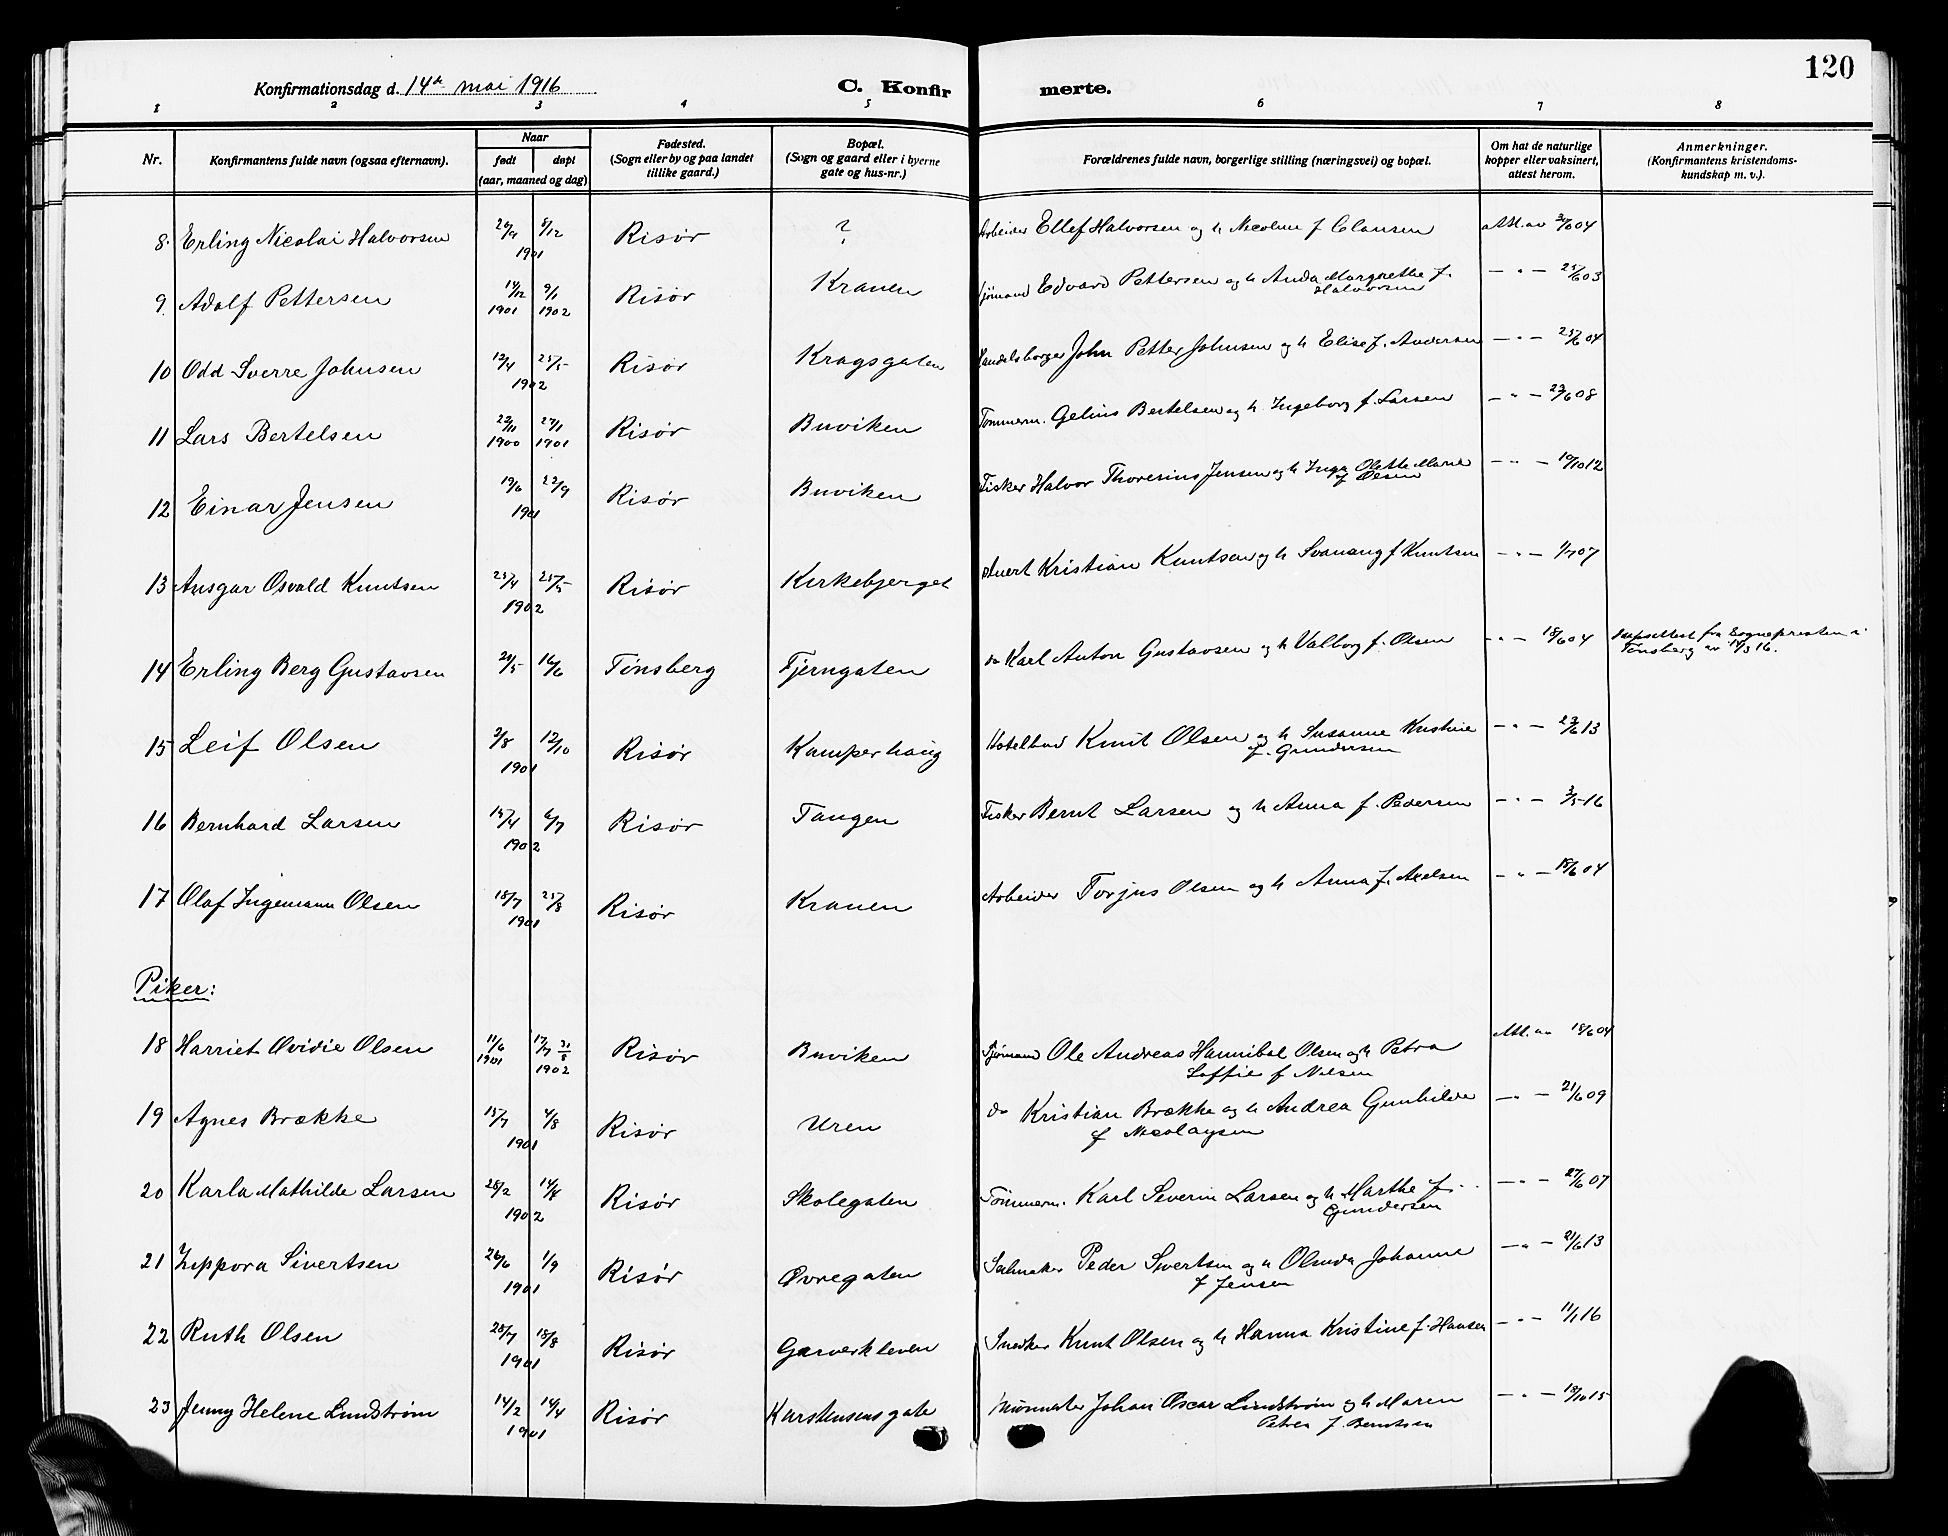 120
Konfirmationsdag d. 14de mai 1916 C. Konfirmerte.
1 2 3 4 5 6 7 8
Nr. Konfirmantens fulde navn (ogsaa efternavn). Naar født døpt (aar, maaned og dag) Fødested. (Sogn eller by og paa landet tillike gaard.) Bopæl. (Sogn og gaard eller i byerne gate og hus-nr.) Forældrenes fulde navn, borgerlige stilling (næringsvei) og bopæl. Om hat de naturlige kopper eller vaksinert, attest herom. Anmerkninger. (Konfirmantens kristendoms-kundskap m. v.).
8 Erling Nicolai Halvorsen 26/9 8/12 1901 Risør ? Arbeider Ellef Halvorsen og h Nicoline f Clausen Att. av /6 04
9. Adolf Pettersen 14/12 1901 9/1 1902 Risør Kranen Sjømand Edvard Pettersen og h Anda Margrethe f. Halvorsen — " — 25/6 03
10 Odd Sverre Johnsen 12/4 25/5 1902 Risør Kragsgaten Handelsborger John Petter Johnsen og h Elise f. Andersen — " — 25/6 04
11 Lars Bertelsen 22/11 1900 27/1 1901 Risør Buviken Tømmerm. Gelius Bertelsen og h. Ingeborg f. Larsen — " — 23/6 08
12 Einar Jensen 19/6 22/9 1901 Risør Buviken Fisker Halvor Thoresius Jensen og h Inga Olette Marie f Olsen — " — 19/10 12
13 Ansgar Osvald Knutsen 25/4 25/5 1902 Risør Kirkebjerget Stuert Kristian Knutsen og h Svanaug f Knutsen — " — 1/7 07
14 Erling Berg Gustavsen 21/5 16/6 Tønsberg Tjerngaten do Karl Anton Gustavsen og h Valborg f. Olsen — " — 18/6 04 Daapsattest fra Sognepresten i Tønsberg av 14/3 16.
15 Leif Olsen 3/8 12/10 1901 Risør Kamperhaug Hotelbud Knut Olsen og h Susanne Kristine f. Gundersen — " — 23/6 13
16 Bernhard Larsen 15/4 6/7 1902 Risør Tangen Fisker Bernt Larsen og h Anna f. Pedersen — " — 3/5 16
17 Olaf Ingemann Olsen 18/7 25/8 1901 Risør Kranen Arbeider Torjus Olsen og h Anna f. Axelsen — " — 18/6 04
Piker:
18 Harriet Ovidie Olsen 11/6 1901 17/7 31/8 1902 Risør Buviken Sjømand Ole Andreas Hannibal Olsen og h Petra Soffie f Nilsen Att. av 18/6 04
19 Agnes Brække 15/7 4/8 1901 Risør Uren do Kristian Brække og h Andrea Gunhilde f Nicolaysen — " — 21/6 09
20 Karla Mathilde Larsen 28/2 14/4 1902 Risør Skolegaten Tømmerm. Karl Severin Larsen og h Marthe f. Gundersen — " — 27/6 07
21 Zippora Sivertsen 26/6 1/9 1901 Risør Øvregaten Salmaker Peder Sivertsen og h Olenda Johanne f Jensen — " — 21/6 13
22 Ruth Olsen 28/7 18/8 1901 Risør Garverkleven Snedker Knut Olsen og h Hanna Kristine f. Hansen — " — 11/1 16
23 Jenny Helene Lundstrøm 14/2 14/4 1901 Risør Karstensens gate Johan Oscar Lundstrøm og h Maren Petrea f. Berntsen — " — 19/10 15